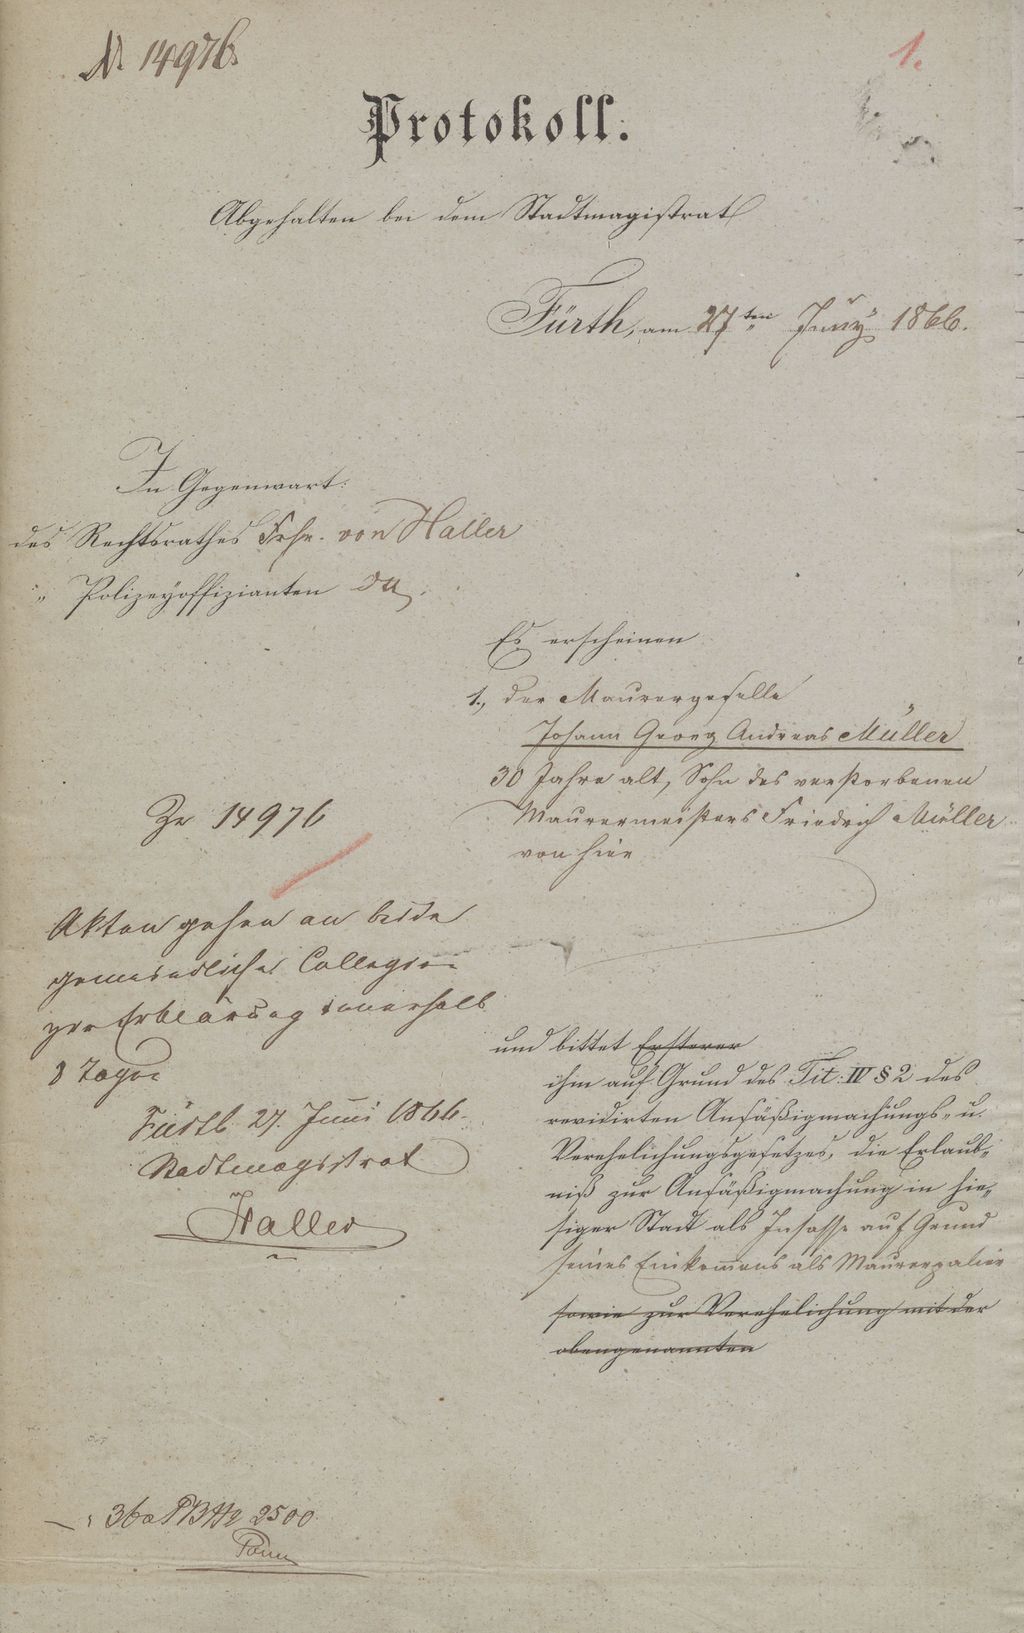 N. 14976.
1.
Protokoll.
Abgehalten bei dem Stadtmagistrat
Fürth, am 27ten Juny 1866.
In Gegenwart:
des Rechtsrathes Frhr. von Haller
" Polizeyoffizianten
Es erscheinen
1., der Maurergeselle
Johann Georg Andreas Müller
30 Jahre alt, Sohn des verstorbenen
Maurermeisters Friedrich Müller
von hier
und bittet Ersterer
ihm auf Grund des Tit: IV § 2 des
revidirten Ansäßigmachungs- u.
Verehelichungsgesetzes, die Erlaub-
niß zur Ansäßigmachung in hie-
siger Stadt als Insasse auf Grund
seines Einkomens als Maurerpalier
sowie zur Verehelichung mit der
obengenannten
Zr 14976
Akten gehen an beide
gemeindliche Collegien
zur Erklärung innerhalb
8 Tagen
Fürth 27. Juni 1866.
Stadtmagistrat
Haller
2500